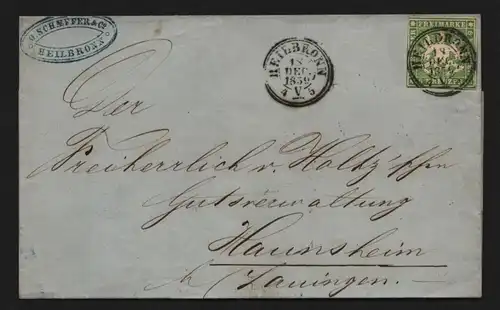 G. SCHAEFFER & Co
HEILBRONN
HEILBRONN
18
DEC.
1859
4 V 5
FREIMARKE
HEILBRONN
18
DEC.
KREUZER
Der
Freiherrlich v. Holtz'schen
Gutsverwaltung
Haunsheim
Lauingen.